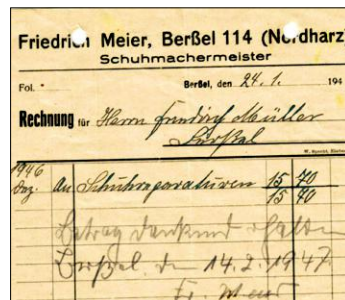 Friedrich Meier, Berßel 114 (Nordharz)
Schuhmachermeister
Fol. *
Berßel, den 24.1. 194
Rechnung für Herrn Friedrich Müller
Berßel
1946
Dez. An Schuhreparaturen 15 70
15 70
Betrag dankend erhalten
Berßel, den 14.2.1947
Fr. Meier